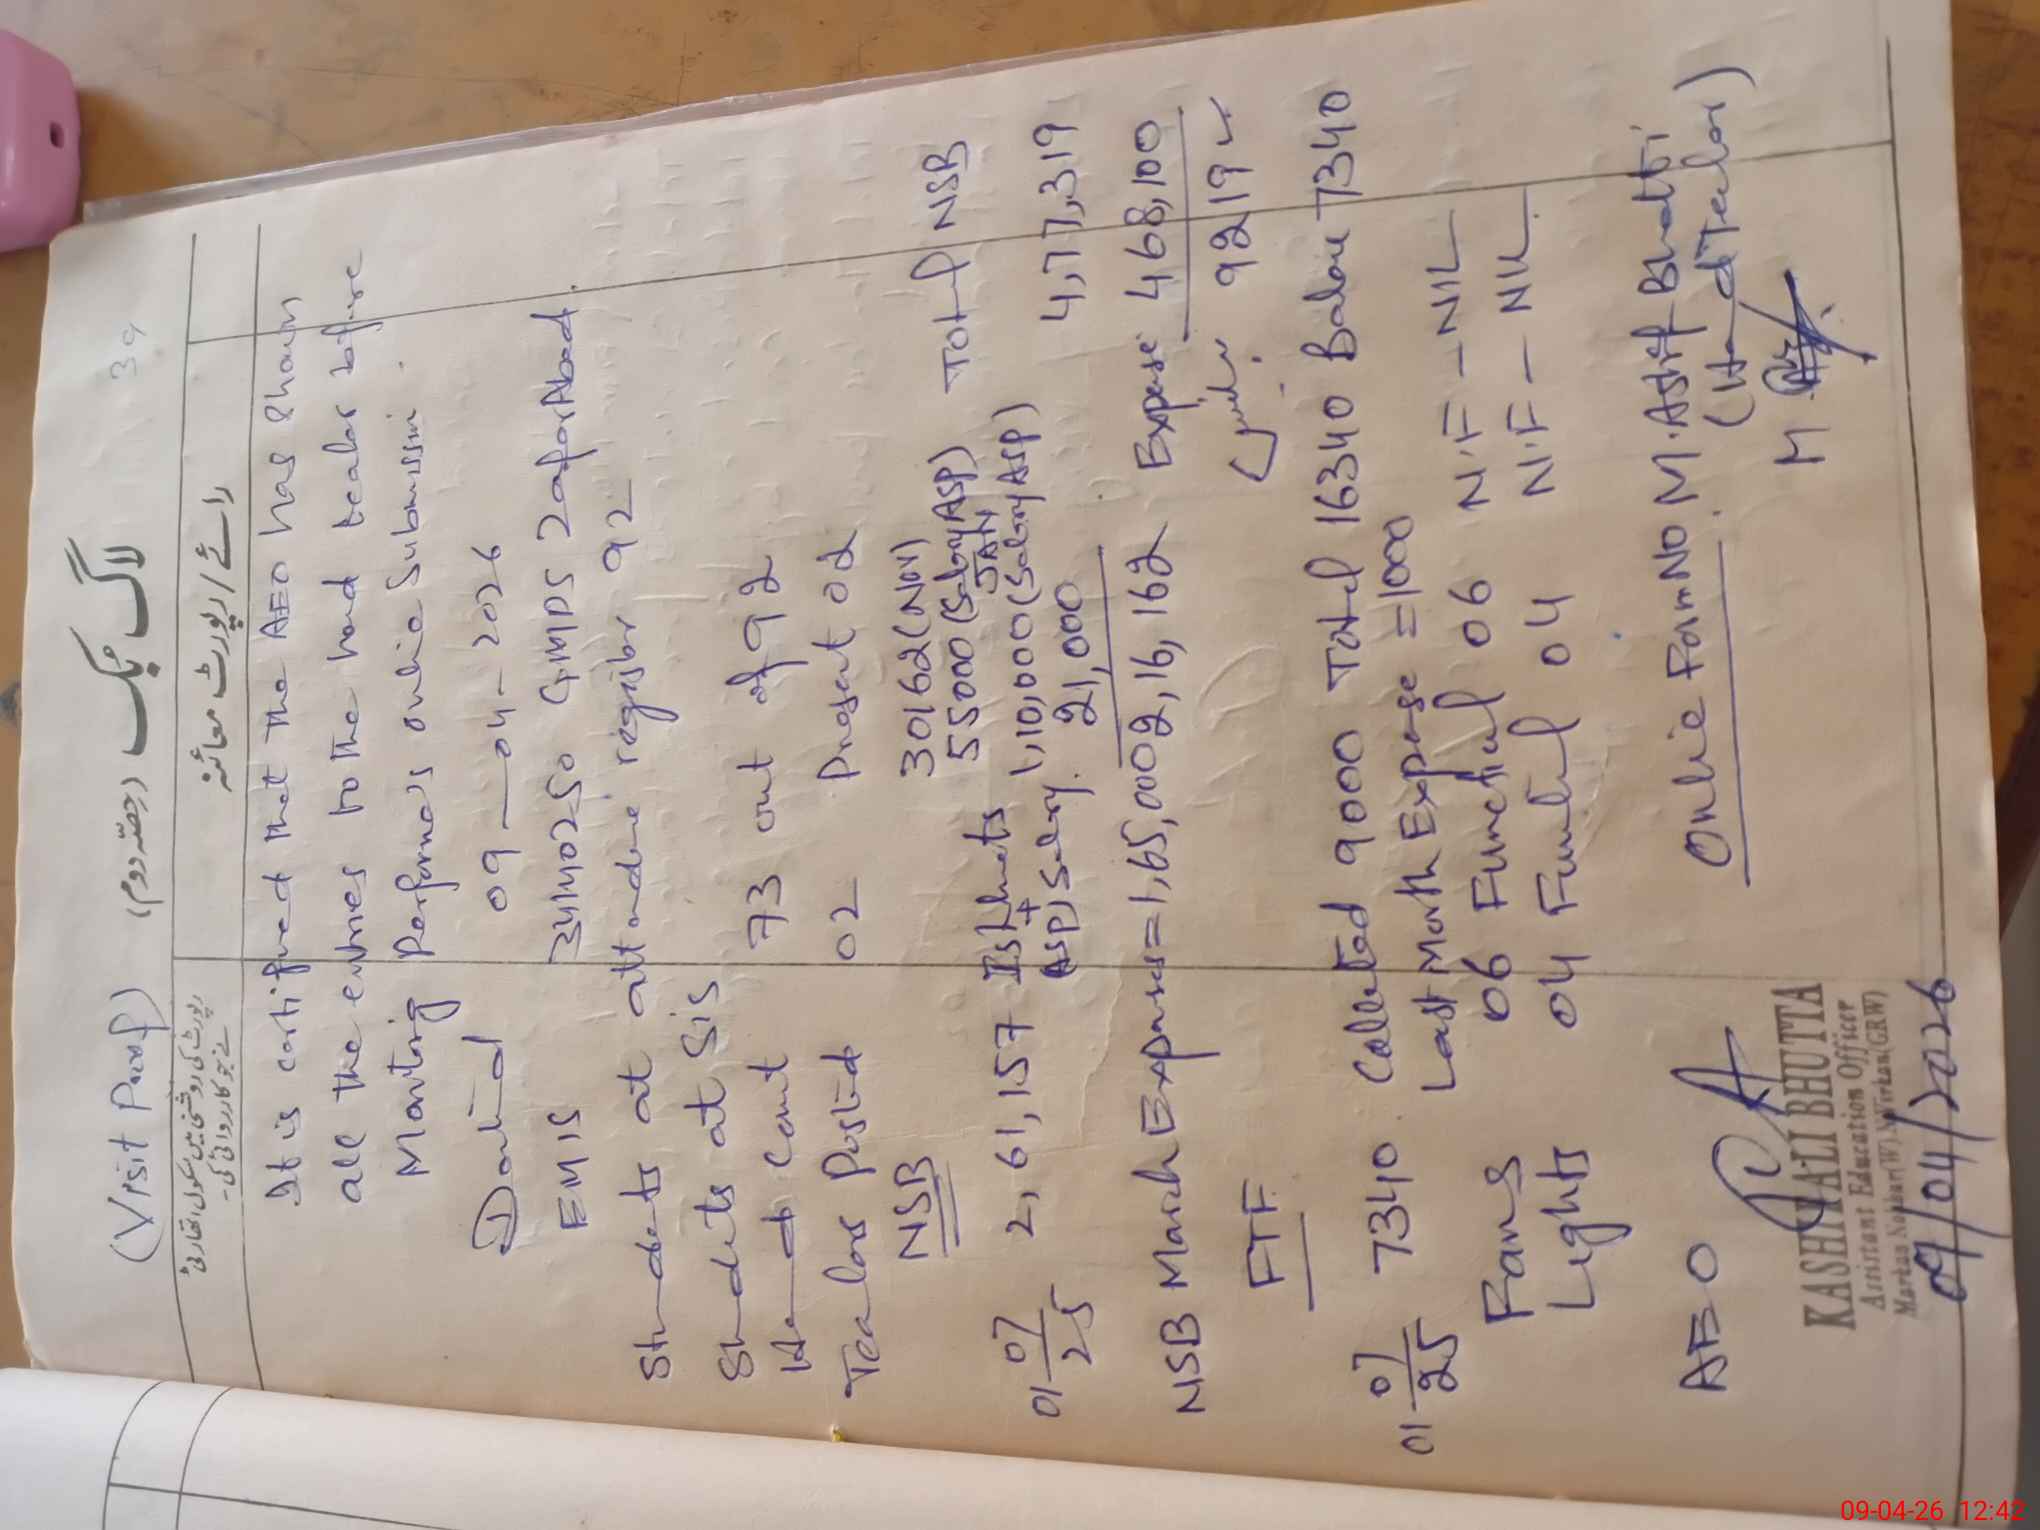 (Visit Proof) 39
لاگ بک (حصّہ دوم)
رائے / رپورٹ معائنہ
رپورٹ کی روشنی میں سکول اتھارٹی
نے جو کارروائی کی۔
It is certified that the AEO has shown
all the entries to the head teacher before
Monitoring Performa's online Submission.
Dated 09-04-2026
EMIS 34140250 GMPS ZafarAbad.
Students at attendance register 92
Students at SIS
Head Count 73 out of 92
Teachers Posted 02 Present 02
NSB
30162 (Nov)
55000 (Salary ASP) Total NSB
JAN
01-07/25 2,61,157 Ishhats + 1,10,000 (Salary ASP) 4,77,319
ASP) Salary. 21,000
NSB March Expanses=1,65,000 2,16,162 Expense 468,100
9219
FTF
01-07/25 7340. Collected 9000 Total 16340 Balance 7340
Last Month Expense =1000
Fans 06 Functional 06 N.F - NIL
Lights 04 04 N.F - NIL
Online FormNo M.Asif Bhatti
AEO (Head Teacher)
KASHIF ALI BHUTTA
Assistant Education Officer
Markaz (W) N.Virkan (GRW)
09/04/2026
09-04-26 12:42